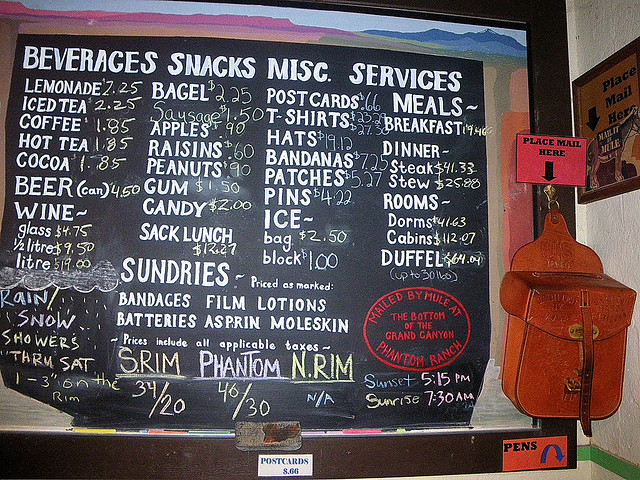 BEVERAGES SNACKS MISC. SERVICES
LEMONADE 2.25
ICED TEA 2.25
COFFEE 1.85
HOT TEA 1.85
COCOA 1.85
BEER (can) 4.50
WINE~
glass $4.75
1/2 litre $9.50
litre $19.00
BAGEL $2.25
Sausage 1.50
APPLES $.90
RAISINS $.60
PEANUTS $.90
GUM $1.50
CANDY $2.00
SACK LUNCH
$12.27
POSTCARDS .66
T-SHIRTS
HATS $19.13
BANDANAS $7.25
PATCHES $5.27
PINS $4.22
ICE~
bag $2.50
block $1.00
MEALS~
BREAKFAST
DINNER~
Steak $41.33
Stew $25.88
ROOMS~
Dorms $41.63
Cabins $112.07
DUFFEL $64.09
(up to 30 lbs)
SUNDRIES~ Priced as marked:
BANDAGES FILM LOTIONS
BATTERIES ASPRIN MOLESKIN
~ Prices include all applicable taxes ~
RAIN/
SNOW
SHOWERS
THRU SAT
1-3" on the
Rim
S.RIM PHANTOM N.RIM
34/20 46/30 N/A
MAILED BY MULE AT
THE BOTTOM
OF THE
GRAND CANYON
PHANTOM RANCH
Sunset 5:15 PM
Sunrise 7:30 AM
POSTCARDS
$.66
PENS
PLACE MAIL
HERE
Place
Mail
Here